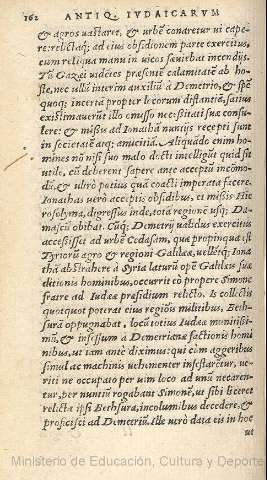 162 ANTIQ. IVDAICARVM
& agros uastaret, & urbē conaretur ui cape-
re: relictaq; ad eius obsidionem parte exercitus,
cum reliqua manu in uicos sæuibat incendijs.
Tū Gazæi uidētes præsentē calamitatē ab ho-
ste, nec ullū interim auxiliū à Demetrio, & spē
quoq; incerta propter locorum distantiā, satius
existimauerūt illo omisso necessitati suæ consu-
lere: & missis ad Ionathā nuntijs recepti sunt
in societatē atq; amicitiā. Aliquādo enim ho-
mines nō nisi suo malo docti intelligūt quid sit
utile, cū deberent sapere ante acceptū incōmo-
dū, & ultrò potius quā coacti imperata facere.
Ionathas uerò acceptis obsidibus, et missis Hie
rosolyma, digressus inde, totā regionē usq; Da-
mascū obibat. Cūq; Demetrij ualidus exercitus
accessisset ad urbē Cedasam, quæ propinqua est
Tyriorū agro & regioni Galilææ, uelletq; Iona
thā abstrahere à Syria laturū opē Galilæis suæ
ditionis hominibus, occurrit eò properè Simone
fratre ad Iudææ præsidium relicto. Is collectis
quotquot poterat eius regiōis militibus, Beth-
surā oppugnabat, locū totius Iudææ munitissi-
mū, & insessum à Demetrianæ factionis homi
nibus, ut iam antè diximus: qui cùm aggeribus
simul ac machinis uehementer infestarētur, ue-
riti ne occupato per uim loco ad unū necaren-
tur, per nuntiū rogabant Simonē, ut sibi liceret
relicta ipsi Bethsura, incolumibus decedere, &
proficisci ad Demetriū. Ille uerò data eis in hoc
ut
Ministerio de Educación, Cultura y Deporte